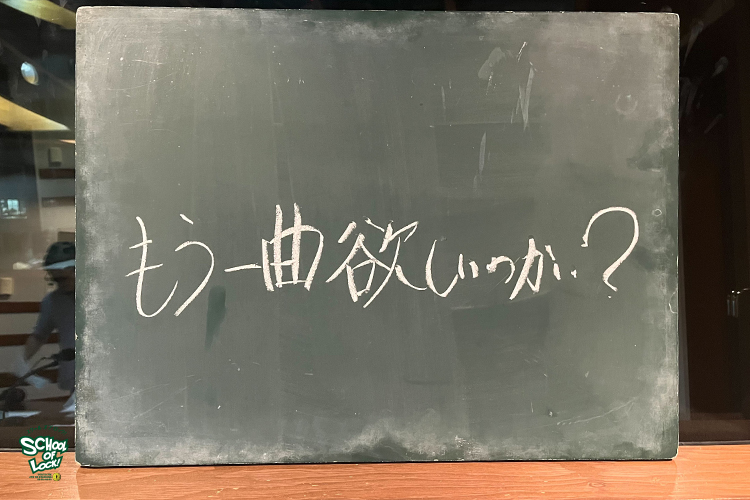 もう一曲欲しいのか?
SCHOOL
OF
LOCK!